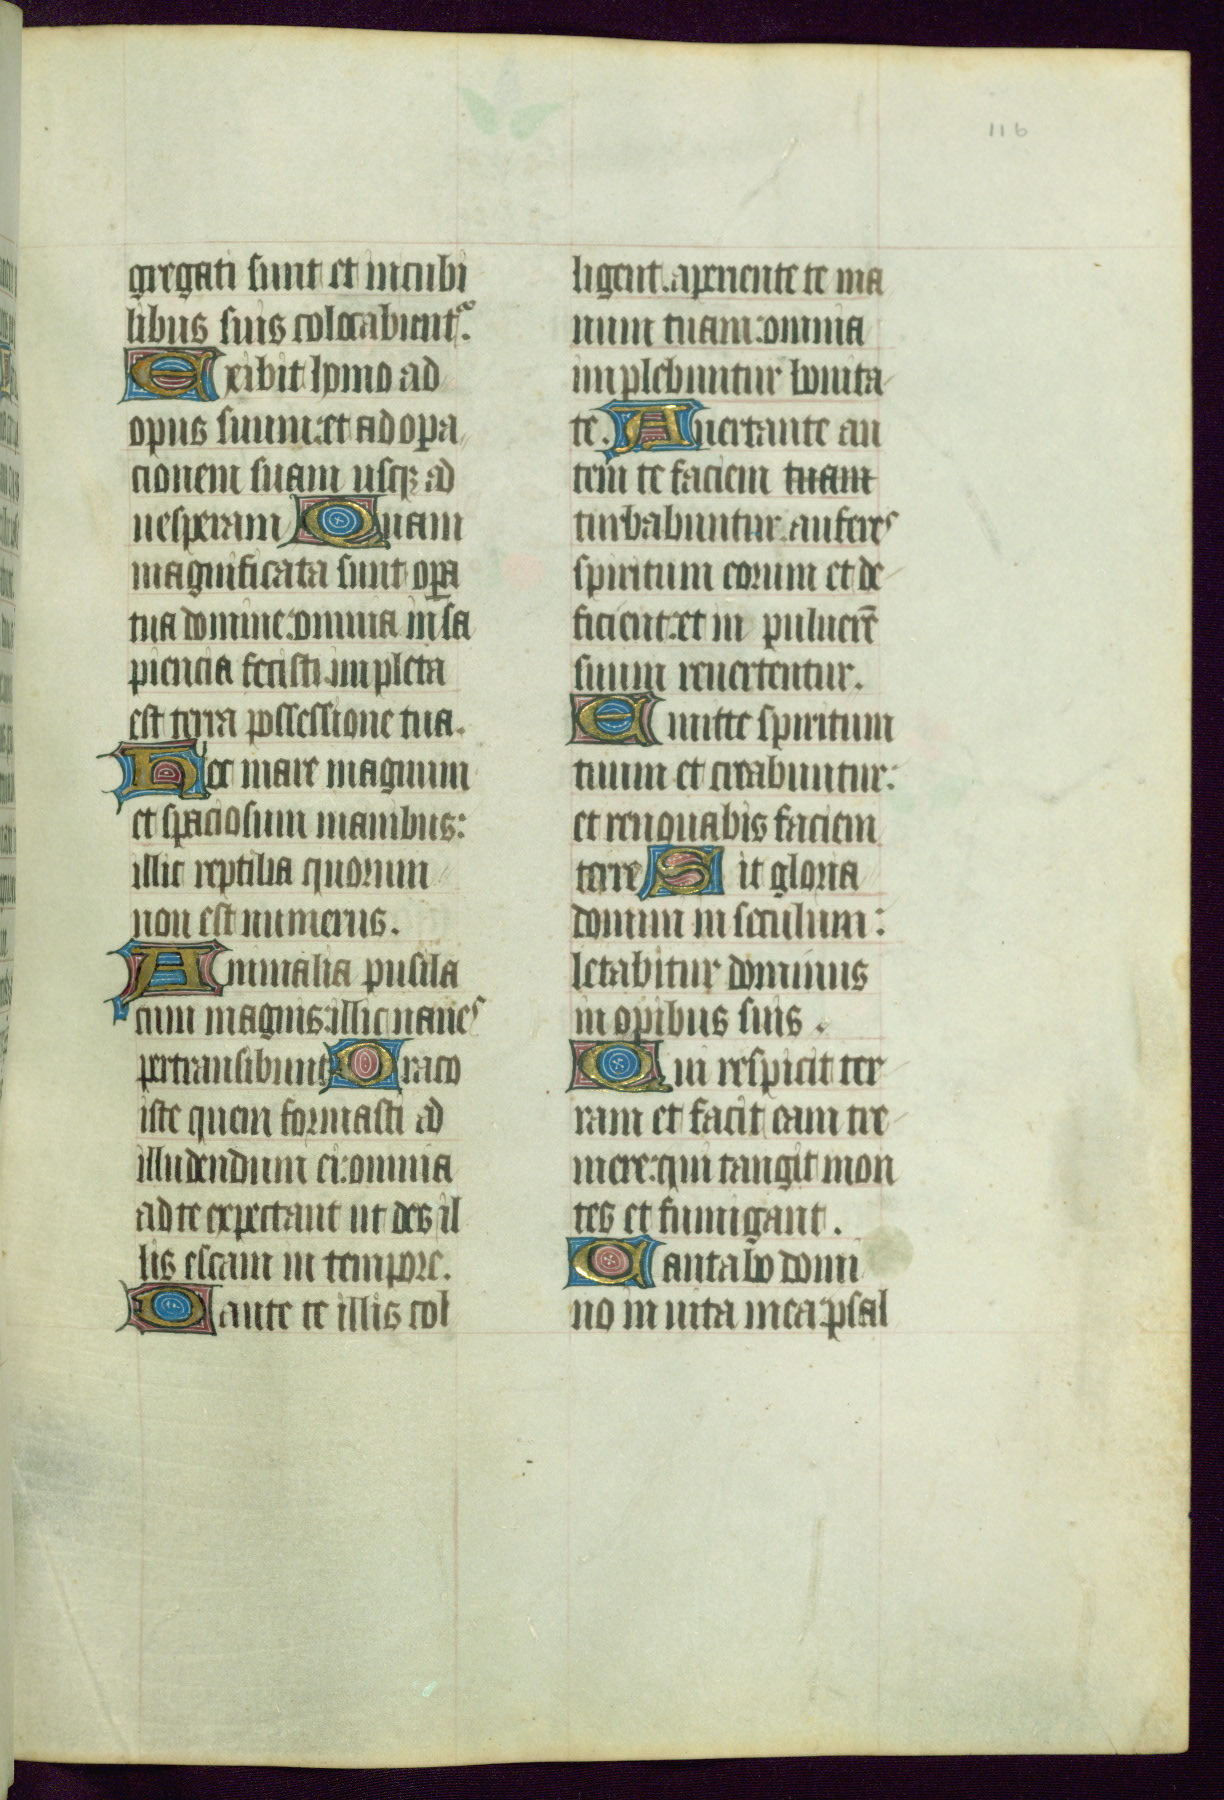 116
gregati sunt et incubi
libus suis colocabunt᷑.
Exibit homo ad
opus suum: et ad opa
cionem suam usqꝫ ad
uesperam Quam
magnificata sunt opa
tua domine: omnia in sa
piencia fecisti. impleta
est terra possessione tua.
Hoc mare magnum
et spaciosum manibus:
illic reptilia quorum
non est numerus.
Animalia pusila
cum magnis: illic naues
pertransibunt Draco
iste quem formasti ad
illudendum ei: omnia
ad te expectant ut des il
lis escam in tempore.
Dante te illis col
ligent. aperiente te ma
num tuam: omnia
implebuntur bonita
te. Auertante au
tem te faciem tuam
turbabuntur. auferes
spiritum eorum et de
ficient: et in puluerē
suum reuertentur.
Emitte spiritum
tuum et creabuntur:
et renouabis faciem
terre Sit gloria
domini in seculum:
letabitur dominus
in opibus suis.
Qui respicit ter
ram et facit eam tre
mere: qui tangit mon
tes et fumigant.
Cantabo domi
no in uita mea: psal